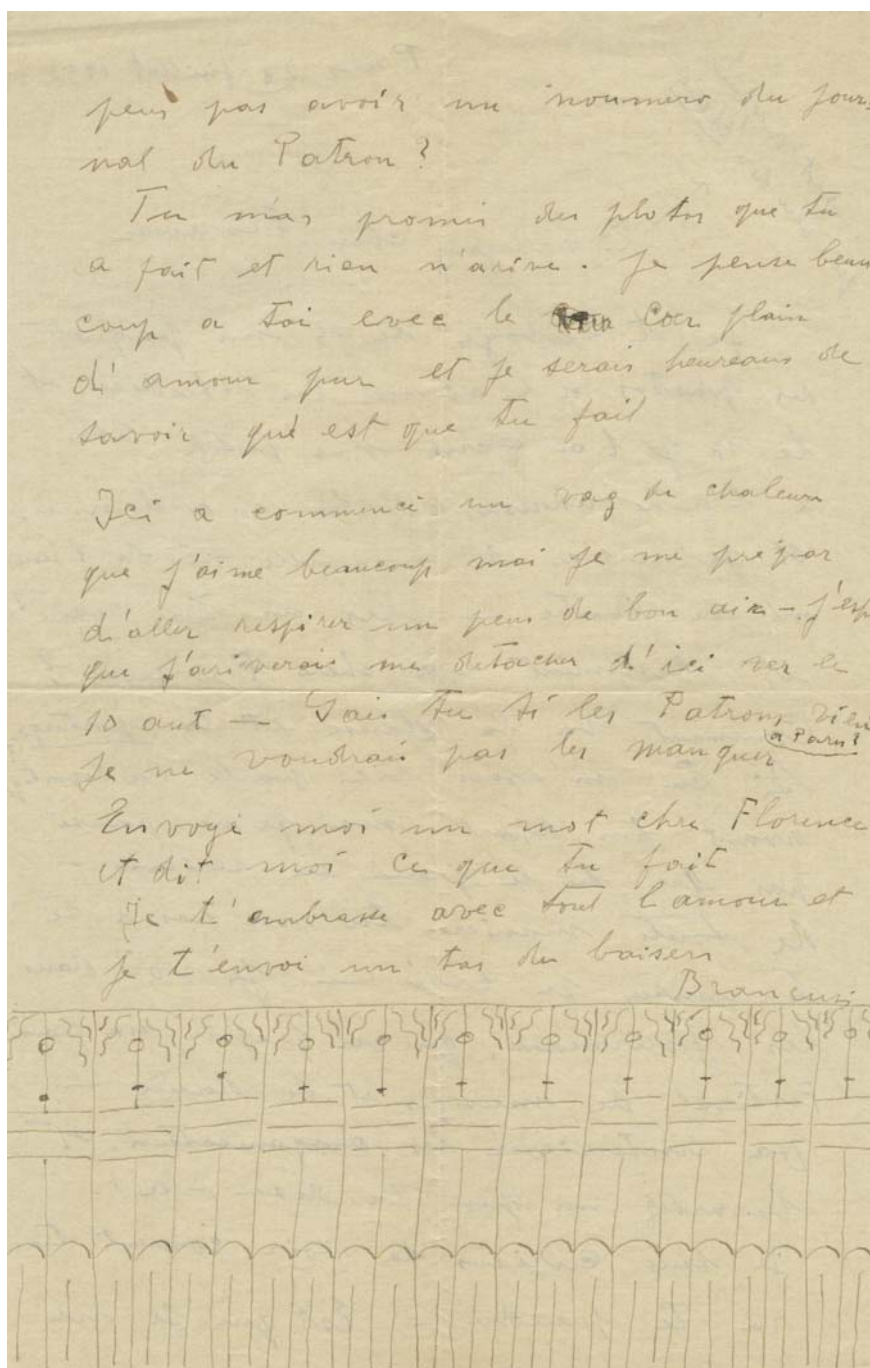 peus pas avoir un noumero du jour-
nal du Patron?
Tu m'as promis des photos que tu
a fait et rien n'arive. Je pense beau
coup a toi evec le Coer plain
d'amour pur et je serais heureaus de
savoir qué est que tu fait
Ici a commencé un vag de chaleur
que j'aime beaucoup mai je me prépar
d'aller respirer un peu de bon air – j'esp
que j'ariverais me detacher d'ici ver le
10 aut — Sais tu si les Patrons vien
a Paris?
je ne voudrais pas les manquer
Envoye moi un mot chre Florence
et dit moi ce que tu fait
Je t'embrasse avec tout l'amour et
je t'envoi un tas du baisers
Brancusi